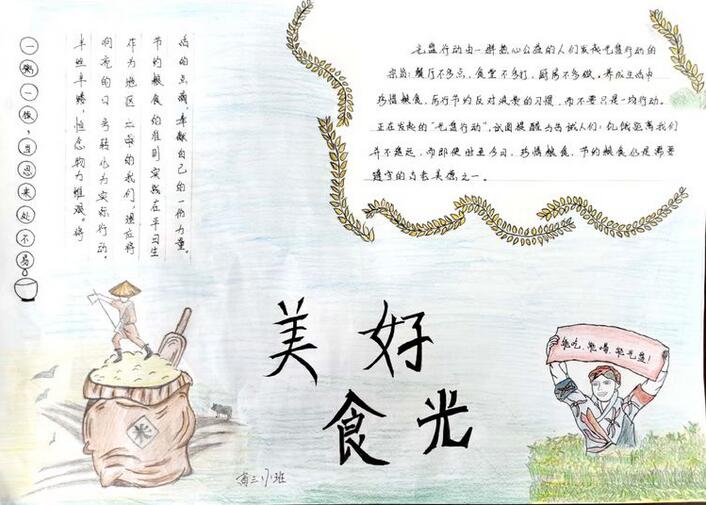 一粥一饭,当思来处不易
半丝半缕,恒念物力维艰。将
响亮的口号转化为实际行动。
作为地区之中的我们,理应将
节约粮食的准则实践在平日生
活的点滴,奉献自己的一份力量。
光盘行动由一群热心公益的人们发起光盘行动的
宗旨:餐厅不多点,食堂不多打,厨房不多做。养成生活中
珍惜粮食,厉行节约反对浪费的习惯,而不要只是一场行动。
正在发起的“光盘行动”,试图提醒与告诫人们:饥饿距离我们
并不遥远,而即便时至今日,珍惜粮食,节约粮食仍是需要
遵守的古老美德之一。
米
美好
食光
能吃,能喝,能光盘!